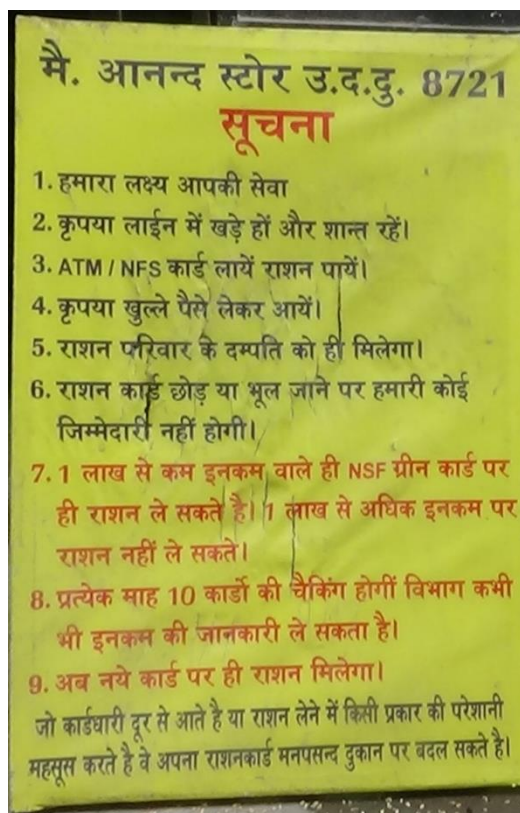 मै. आनन्द स्टोर उ.द.दु. 8721
सूचना
1. हमारा लक्ष्य आपकी सेवा
2. कृपया लाईन में खड़े हों और शान्त रहें।
3. ATM / NFS कार्ड लायें राशन पायें।
4. कृपया खुल्ले पैसे लेकर आयें।
5. राशन परिवार के दम्पति को ही मिलेगा।
6. राशन कार्ड छोड़ या भूल जाने पर हमारी कोई
जिम्मेदारी नहीं होगी।
7. 1 लाख से कम इनकम वाले ही NSF ग्रीन कार्ड पर
ही राशन ले सकते है। 1 लाख से अधिक इनकम पर
राशन नहीं ले सकते।
8. प्रत्येक माह 10 कार्डो की चैकिंग होगीं विभाग कभी
भी इनकम की जानकारी ले सकता है।
9. अब नये कार्ड पर ही राशन मिलेगा।
जो कार्डधारी दूर से आते है या राशन लेने में किसी प्रकार की परेशानी
महसूस करते है वे अपना राशनकार्ड मनपसन्द दुकान पर बदल सकते है।